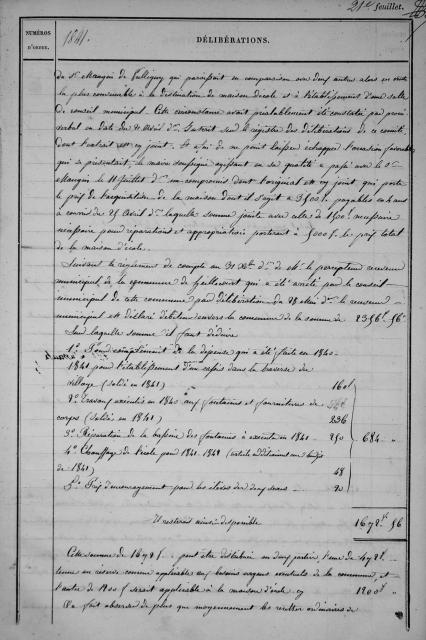 21e feuillet.
NUMÉROS D'ORDRE.
1841.
DÉLIBÉRATIONS.
du Sr Maugin de Pulligny qui paraissait en comparaison aux deux autres alors en vente
la plus convenable à la destination de maison d'école et à l'établissement d'une salle
de conseil municipal. Cette circonstance avait préalablement été constatée par procès
verbal en date du avril dr. inscrit sur le registre des délibérations de ce comité
dont l'extrait est cy joint. Et afin de ne point laisser échapper l'occasion favorable
qui se présentait, le maire soussigné agissant en sa qualité a passé avec le Sr
Maugin le 11 Juillet dr. un compromis dont l'original est cy joint qui porte
le prix de l'acquisition de la maison dont il s'agit à 3500f. payables en 4 ans
à courir du 25 Avril dr. laquelle somme jointe avec celle de 1500f. nécessaire
nécessaire pour réparations et appropriations porterait à 5000f. le prix total
de la maison d'école.
Suivant le règlement de compte au 31 Xbre dr. de Mr. le percepteur receveur
municipal de la commune de qui a été arrêté par le conseil
municipal de cette commune par délibération du mai dr. le receveur
municipal est déclaré débiteur envers la commune de la somme de 2356f. 56c
Sur laquelle somme il faut déduire
1° Pour complément de la dépense qui a été faite en 1840
1841 pour l'établissement d'un cassis dans la traverse du
village (soldé en 1841) 160f
2° Travaux exécutés en 1840 aux fontaines et fournitures de
corps (soldés en 1841) 236
3° Réparation de la bassine des fontaines à exécuter en 1841 250 684 "
4° Chauffage de l'école pour 1841-1842 (article additionnel au budget
de 1841) 48
5° Prix d'encouragement pour les élèves des deux sexes 20
Il resterait ainsi disponible 1672f 56
Cette somme de 1672f. peut être distribuée en deux parties, l'une de 472f.
tenue en réserve comme applicable aux besoins urgens éventuels de la commune, et
l'autre de 1200f serait applicable à la maison d'école cy 1200f
Il a fait observer de plus que moyennement les recettes ordinaires de